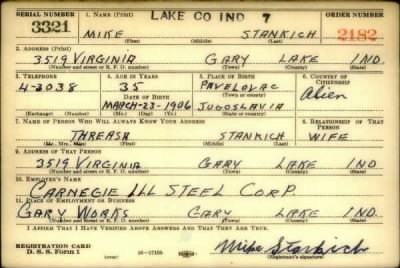 SERIAL NUMBER 1. NAME (Print) LAKE CO IND 7 ORDER NUMBER
3321 MIKE STANKICH 2182
(First) (Middle) (Last)
2. ADDRESS (Print)
3519 VIRGINIA GARY LAKE IND.
(Number and street or R. F. D. number) (Town) (County) (State)
3. TELEPHONE 4. AGE IN YEARS 5. PLACE OF BIRTH 6. COUNTRY OF CITIZENSHIP
4-2038 35 PAVELOVAC Alien
DATE OF BIRTH (Town or county)
MARCH-23-1906 JUGOSLAVIA
(Exchange) (Number) (Mo.) (Day) (Yr.) (State or country)
7. NAME OF PERSON WHO WILL ALWAYS KNOW YOUR ADDRESS 8. RELATIONSHIP OF THAT PERSON
THREASA STANKICH WIFE
(Mr., Mrs., Miss) (First) (Middle) (Last)
9. ADDRESS OF THAT PERSON
3519 VIRGINIA GARY LAKE IND.
(Number and street or R. F. D. number) (Town) (County) (State)
10. EMPLOYER'S NAME
CARNEGIE ILL STEEL CORP.
11. PLACE OF EMPLOYMENT OR BUSINESS
GARY WORKS GARY LAKE IND.
(Number and street or R. F. D. number) (Town) (County) (State)
I AFFIRM THAT I HAVE VERIFIED ABOVE ANSWERS AND THAT THEY ARE TRUE.
REGISTRATION CARD
D. S. S. Form 1 16-17105 Mike Stankich
(Registrant's signature)